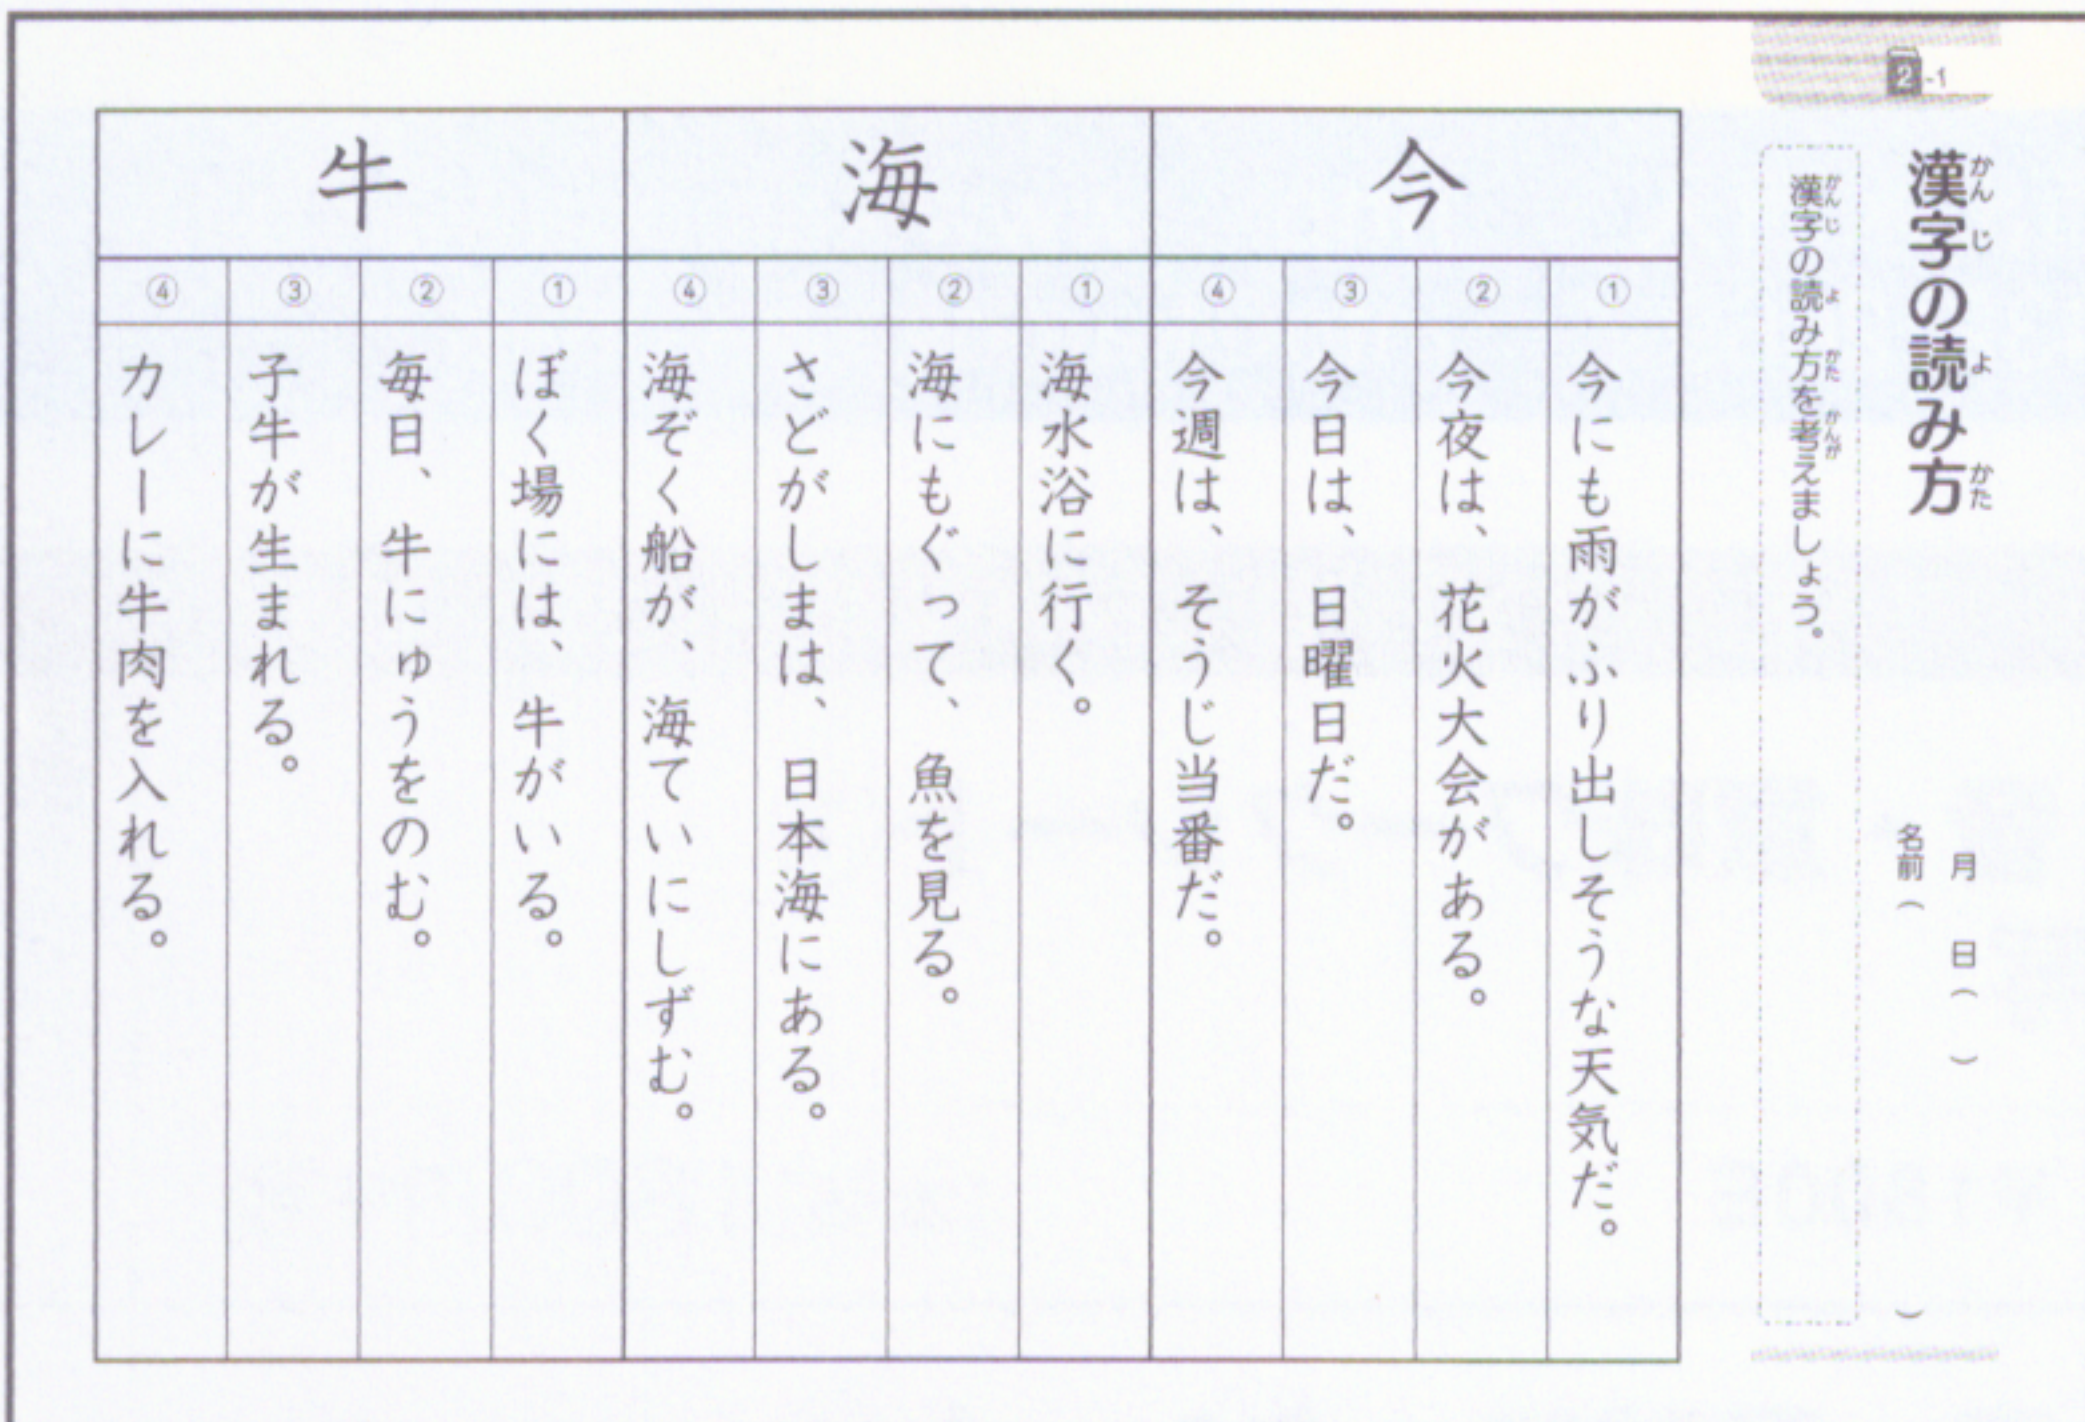 2-1
漢字の読み方
かんじ よ かた
月 日( )
名前( )
漢字の読み方を考えましょう。
かんじ よ かた かんが
今
①
今にも雨がふり出しそうな天気だ。
②
今夜は、花火大会がある。
③
今日は、日曜日だ。
④
今週は、そうじ当番だ。
海
①
海水浴に行く。
②
海にもぐって、魚を見る。
③
さどがしまは、日本海にある。
④
海ぞく船が、海ていにしずむ。
牛
①
ぼく場には、牛がいる。
②
毎日、牛にゅうをのむ。
③
子牛が生まれる。
④
カレーに牛肉を入れる。